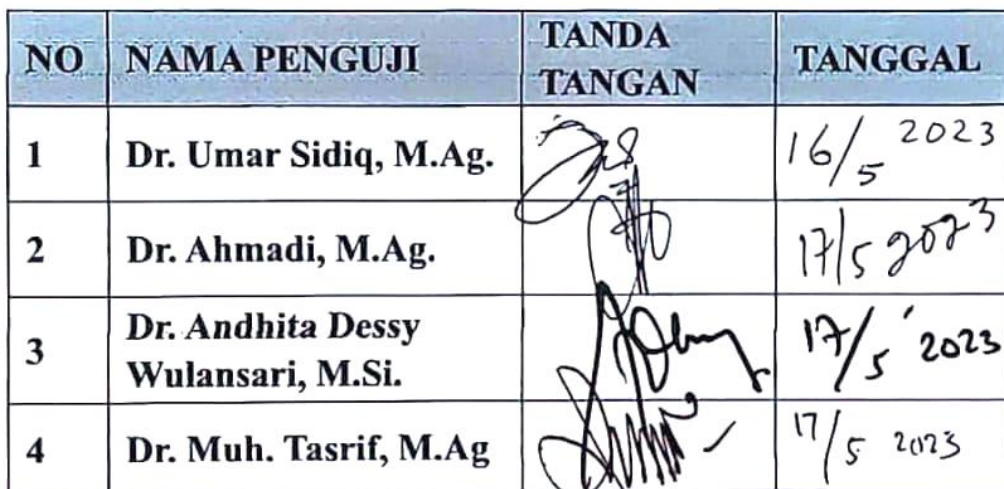 NO NAMA PENGUJI TANDA TANGAN TANGGAL
1 Dr. Umar Sidiq, M.Ag. 16/5 2023
2 Dr. Ahmadi, M.Ag. 17/5 2023
3 Dr. Andhita Dessy Wulansari, M.Si. 17/5 2023
4 Dr. Muh. Tasrif, M.Ag 17/5 2023